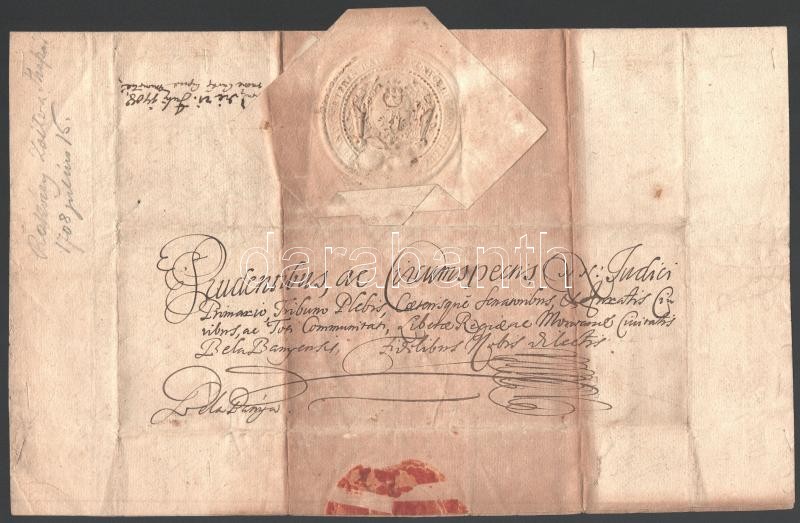 Rákóczy
1708 julius 15.
die 21. July 1708.
Prudentibus ac Circumspectis N. N: Judici
Primario, Tribuno Plebis, Caeterisque Senatoribus, ac Juratis Ci-
vibus, ac Toti Communitati, Liberae Regiae ac Montanae Civitatis
Bela Banyensis, Fidelibus Nobis dilectis
Bela Banya.
darabanth